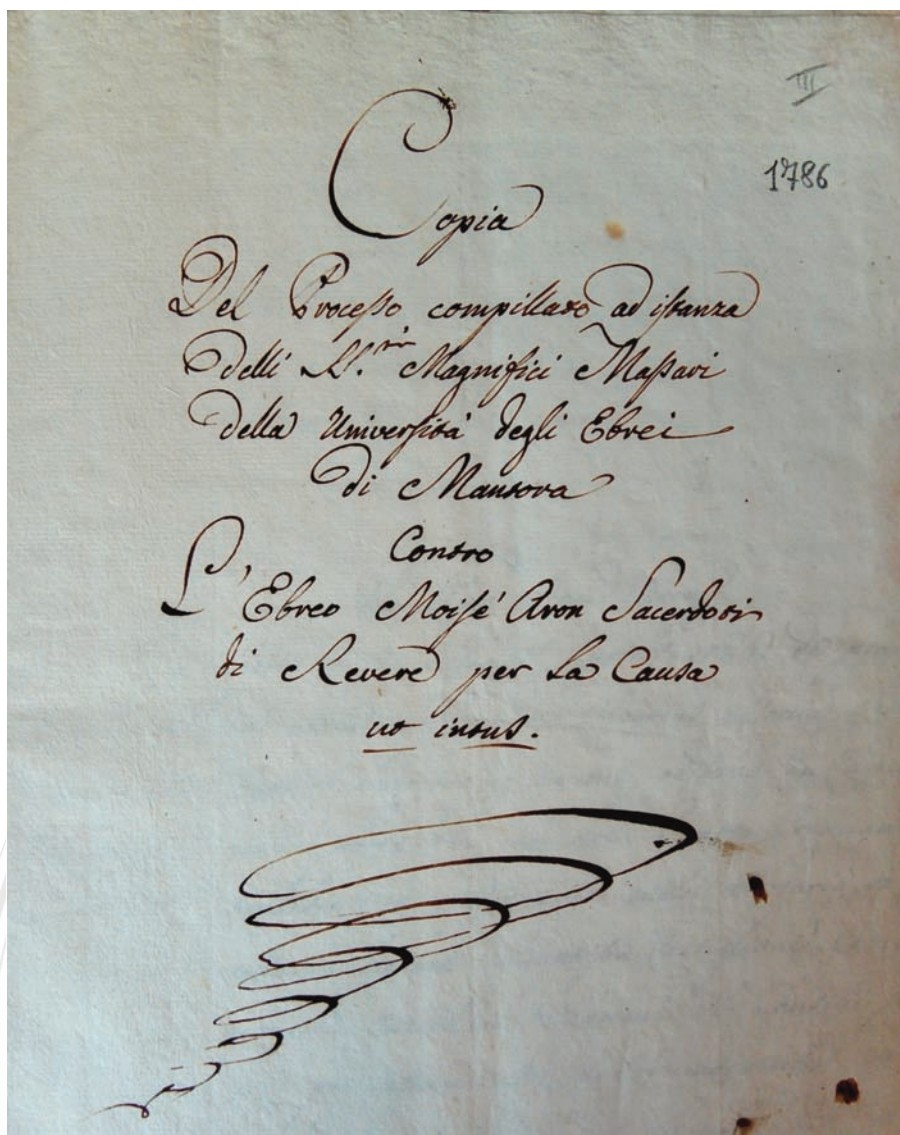 III
1786
Copia
Del Processo compillato ad istanza
delli Magnifici Massari
della Università degli Ebrei
di Mantova
Contro
L'Ebreo Moisé Aron Sacerdoti
di Revere per la Causa
ut intus.